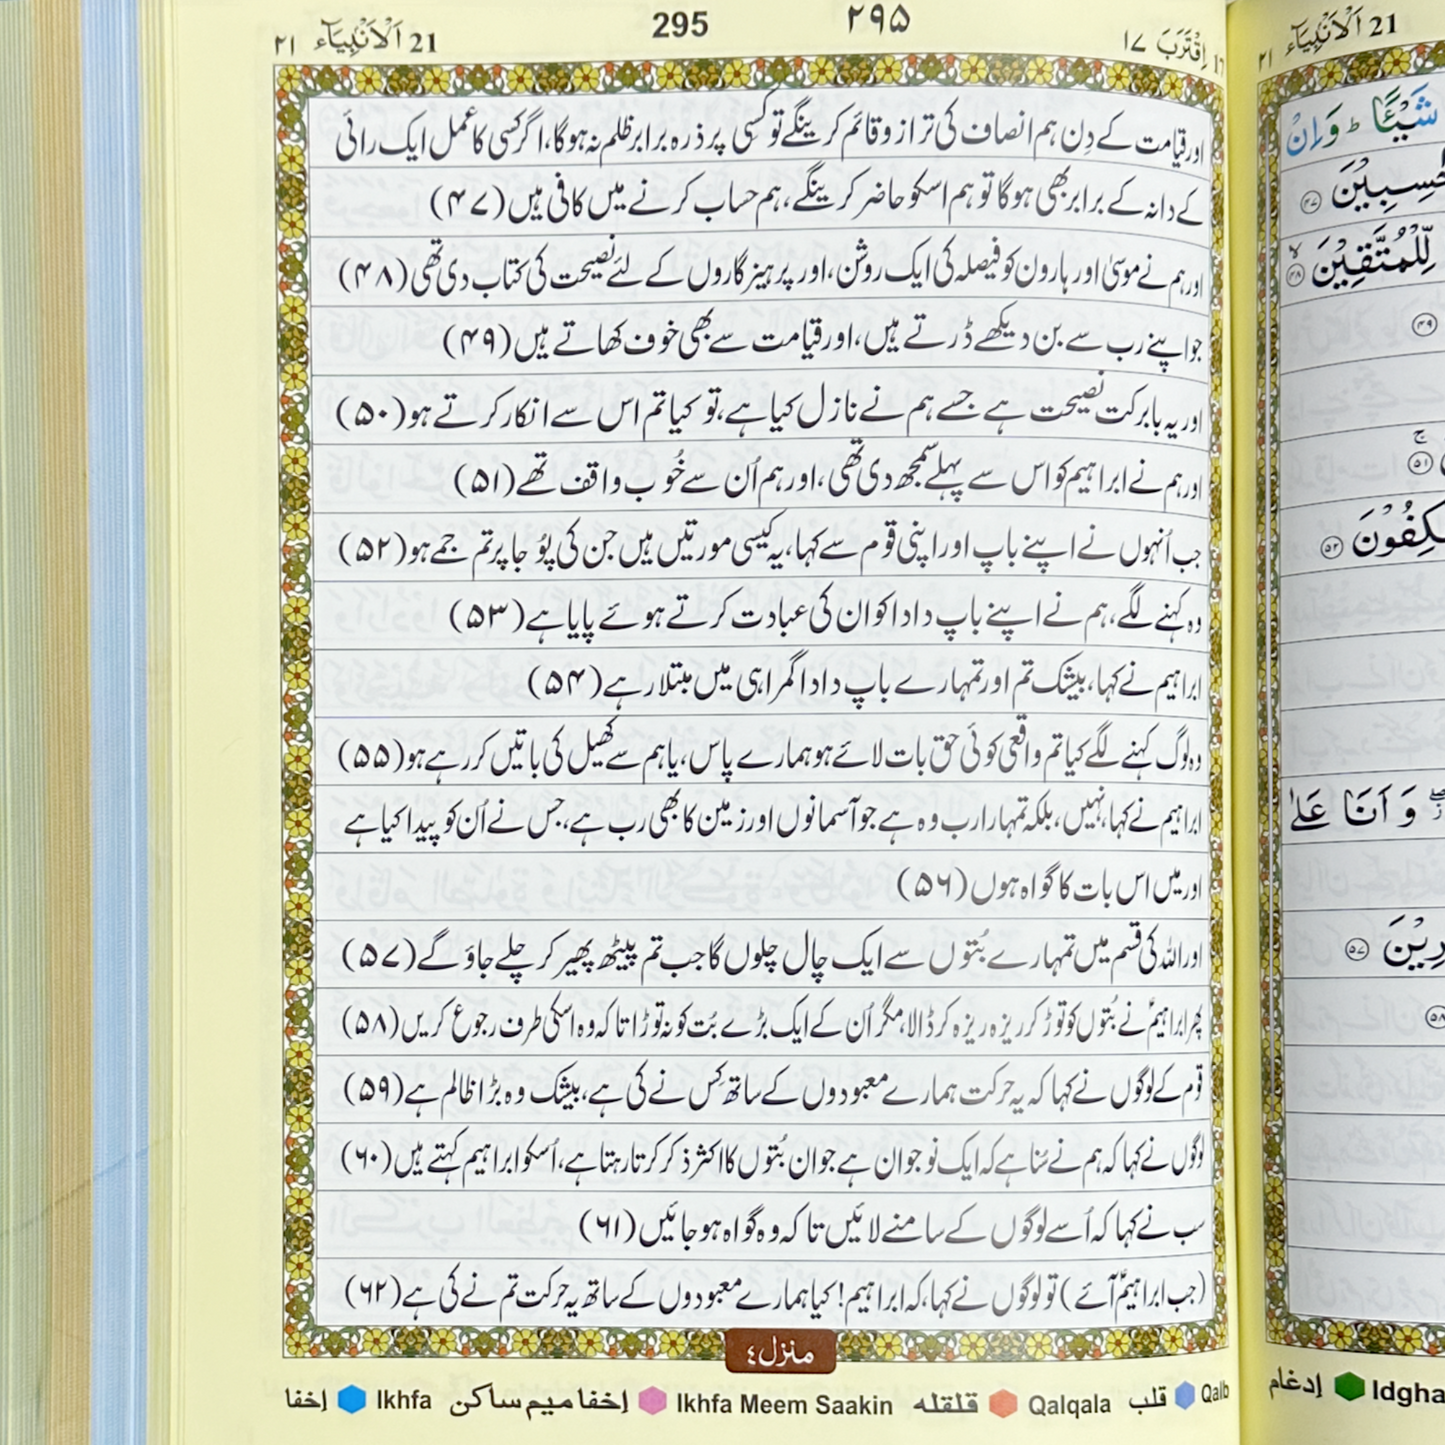 ٢١ اَلْاَنْبِيَآء 21
295
٢٩٥
اِقْتَرَبَ ١٧
اورقیامت کے دِن ہم انصاف کی ترازو قائم کرینگے تو کسی پر ذرہ برابر ظلم نہ ہوگا، اگر کسی کا عمل ایک رائی
کے دانہ کے برابر بھی ہوگا تو ہم اسکو حاضر کرینگے، ہم حساب کرنے میں کافی ہیں (۴۷)
اورہم نے موسیٰ اور ہارون کو فیصلہ کی ایک روشن، اور پرہیزگاروں کے لئے نصیحت کی کتاب دی تھی (۴۸)
جو اپنے رب سے بن دیکھے ڈرتے ہیں، اور قیامت سے بھی خوف کھاتے ہیں (۴۹)
اور یہ بابرکت نصیحت ہے جسے ہم نے نازل کیا ہے، تو کیا تم اس سے انکار کرتے ہو (۵۰)
اورہم نے ابراہیم کو اس سے پہلے سمجھ دی تھی، اور ہم اُن سے خُوب واقف تھے (۵۱)
جب اُنہوں نے اپنے باپ اور اپنی قوم سے کہا، یہ کیسی مورتیں ہیں جن کی پُوجا پر تم جمے ہو (۵۲)
وہ کہنے لگے، ہم نے اپنے باپ دادا کو ان کی عبادت کرتے ہوئے پایا ہے (۵۳)
ابراہیم نے کہا، بیشک تم اور تمہارے باپ دادا گمراہی میں مبتلا رہے (۵۴)
وہ لوگ کہنے لگے کیا تم واقعی کوئی حق بات لائے ہو ہمارے پاس، یا ہم سے کھیل کی باتیں کر رہے ہو (۵۵)
ابراہیم نے کہا، نہیں، بلکہ تمہارا رب وہ ہے جو آسمانوں اور زمین کا بھی رب ہے، جس نے اُن کو پیدا کیا ہے
اور میں اس بات کا گواہ ہوں (۵۶)
اور اللہ کی قسم میں تمہارے بُتوں سے ایک چال چلوں گا جب تم پیٹھ پھیر کر چلے جاؤ گے (۵۷)
پھر ابراہیمؑ نے بُتوں کو توڑ کر ریزہ ریزہ کر ڈالا، مگر اُن کے ایک بڑے بُت کو نہ توڑا تاکہ وہ اسکی طرف رجوع کریں (۵۸)
قوم کے لوگوں نے کہا کہ یہ حرکت ہمارے معبودوں کے ساتھ کِس نے کی ہے، بیشک وہ بڑا ظالم ہے (۵۹)
لوگوں نے کہا کہ ہم نے سُنا ہے کہ ایک نوجوان ہے جو ان بُتوں کا اکثر ذکر کرتا رہتا ہے، اُسکو ابراہیم کہتے ہیں (۶۰)
سب نے کہا کہ اُسے لوگوں کے سامنے لائیں تاکہ وہ گواہ ہو جائیں (۶۱)
(جب ابراہیمؑ آئے) تو لوگوں نے کہا، کہ ابراہیم! کیا ہمارے معبودوں کے ساتھ یہ حرکت تم نے کی ہے (۶۲)
منزل ٤
إخفا Ikhfa إخفا میم ساکن Ikhfa Meem Saakin قلقله Qalqala قلب Qalb
٢١ اَلْاَنْبِيَآء 21
شَيْـًٔا ؕ وَاِنْ
حٰسِبِيْنَ ٤٧
لِّلْمُتَّقِيْنَ ٤٨
٤٩
٥١
عٰكِفُوْنَ ٥٢
وَ اَنَا عَلٰى
٥٧
٥٨
إدغام